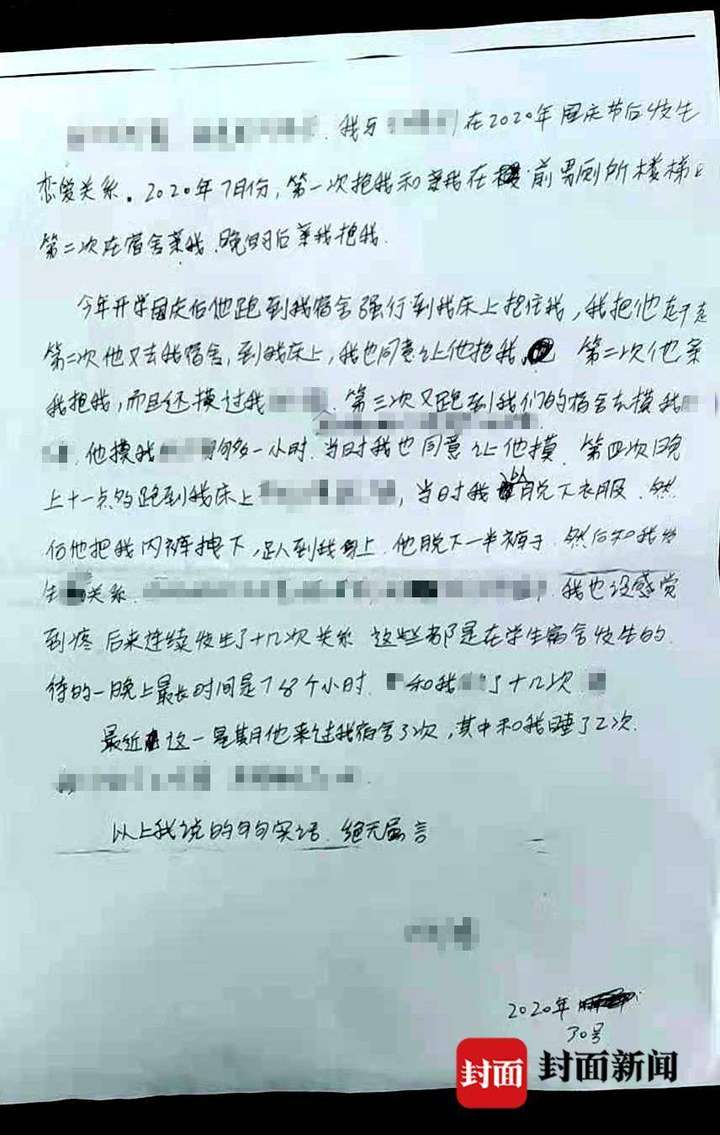 我与 在2020年国庆节后发生
恋爱关系。2020年7月份，第一次抱我和亲我在 前男厕所楼梯
第二次在宿舍亲我、晚的后亲我抱我.
今年开学国庆后他跑到我宿舍强行到我床上抱住我，我把他赶下走
第二次他又去我宿舍，到我床上，我也同意让他抱我 第二次他亲
我抱我，而且还摸过我 . 第三次又跑到我们的宿舍去摸我
. 他摸我 够一小时. 当时我也同意让他摸. 第四次晚
上十一点多跑到我床上 ，当时我 以 脱下衣服. 然
后他把我内裤拽下，趴到我身上. 他脱下一半裤子. 然后和我发
生 关系. 我也没感觉
到疼 后来连续发生了十几次关系 这些都是在学生宿舍发生的.
待的一晚上最长时间是7 8个小时. 和我 了十几次
最近 这一星期他来过我宿舍3次，其中和我睡了2次.
以上我说的句句实话. 绝无虚言
2020年
30号
封面 封面新闻